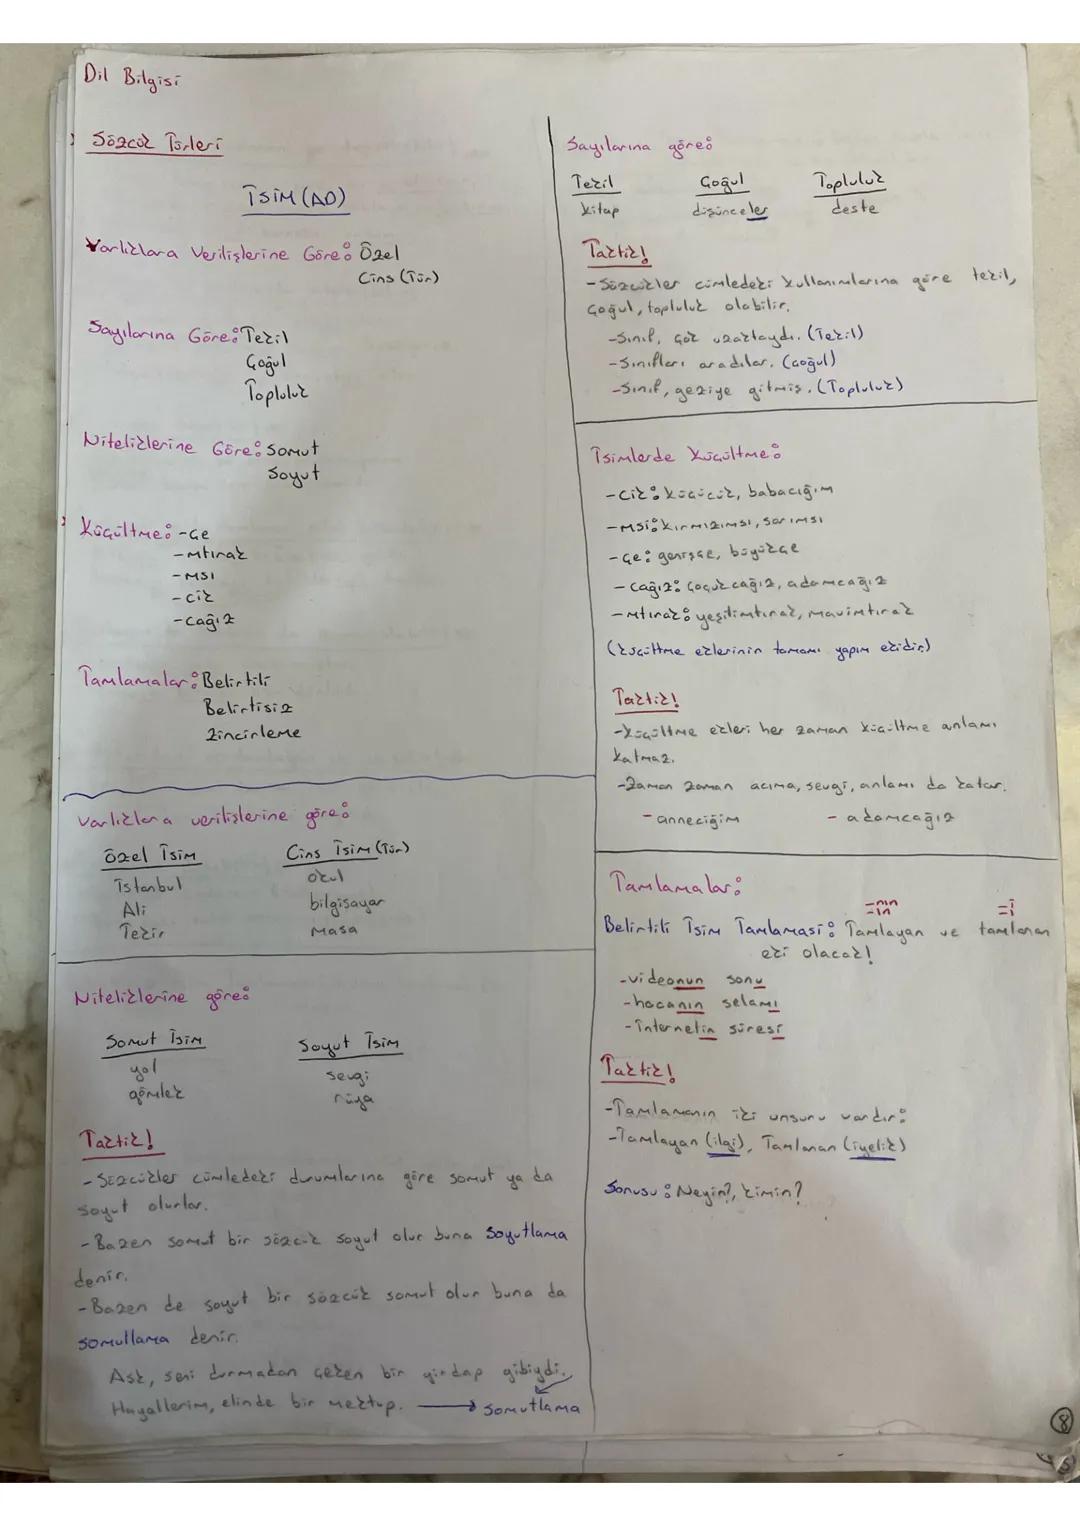 Dil Bilgisi
Sözcük Türleri
İSİM (AD)
Varlıklara Verilişlerine Göre: Özel
Cins (Tür)
Sayılarına Göre: Tekil
Çoğul
Topluluk
Niteliklerine Göre: Somut
Soyut
Küçültme: -Ce
-mtırak
-MSI
-cik
-cağız
Tamlamalar: Belirtili
Belirtisiz
Zincirleme
Varlıklara verilişlerine göre:
Özel İsim Cins İsim (Tür)
İstanbul okul
Ali bilgisayar
Tekir Masa
Niteliklerine göre:
Somut İsim Soyut İsim
yol sevgi
gömlek rüya
Taktik!
-Sözcükler cümledeki durumlarına göre somut ya da
soyut olurlar.
-Bazen somut bir sözcük soyut olur buna soyutlama
denir.
-Bazen de soyut bir sözcük somut olur buna da
somutlama denir.
Aşk, seni durmadan çeken bir girdap gibiydi.
Hayallerim, elinde bir mektup. → somutlama
Sayılarına göre:
Tekil Çoğul Topluluk
kitap düşünceler deste
Taktik!
-Sözcükler cümledeki kullanımlarına göre tekil,
çoğul, topluluk olabilir.
-Sınıf, çok uzaktaydı. (Tekil)
-Sınıfları aradılar. (çoğul)
-Sınıf, geziye gitmiş. (Topluluk)
İsimlerde Küçültme:
-Cik: küçücük, babacığım
-msi: kırmızımsı, sarımsı
-çe: genişçe, büyükçe
-cağız: çocukcağız, adamcağız
-mtırak: yeşilimtırak, mavimtırak
(küçültme eklerinin tamamı yapım ekidir)
Taktik!
-küçültme ekleri her zaman küçültme anlamı
katmaz.
-Zaman zaman acıma, sevgi, anlamı da katar.
-anneciğim - adamcağız
Tamlamalar:
-nın
-ın -i
Belirtili İsim Tamlaması: Tamlayan ve tamlanan
eki olacak!
-videonun sonu
-hocanın selamı
-İnternetin süresi
Taktik!
-Tamlamanın iki unsuru vardır:
-Tamlayan (ilgi), Tamlanan (iyelik)
Sorusu: Neyin?, kimin?
8